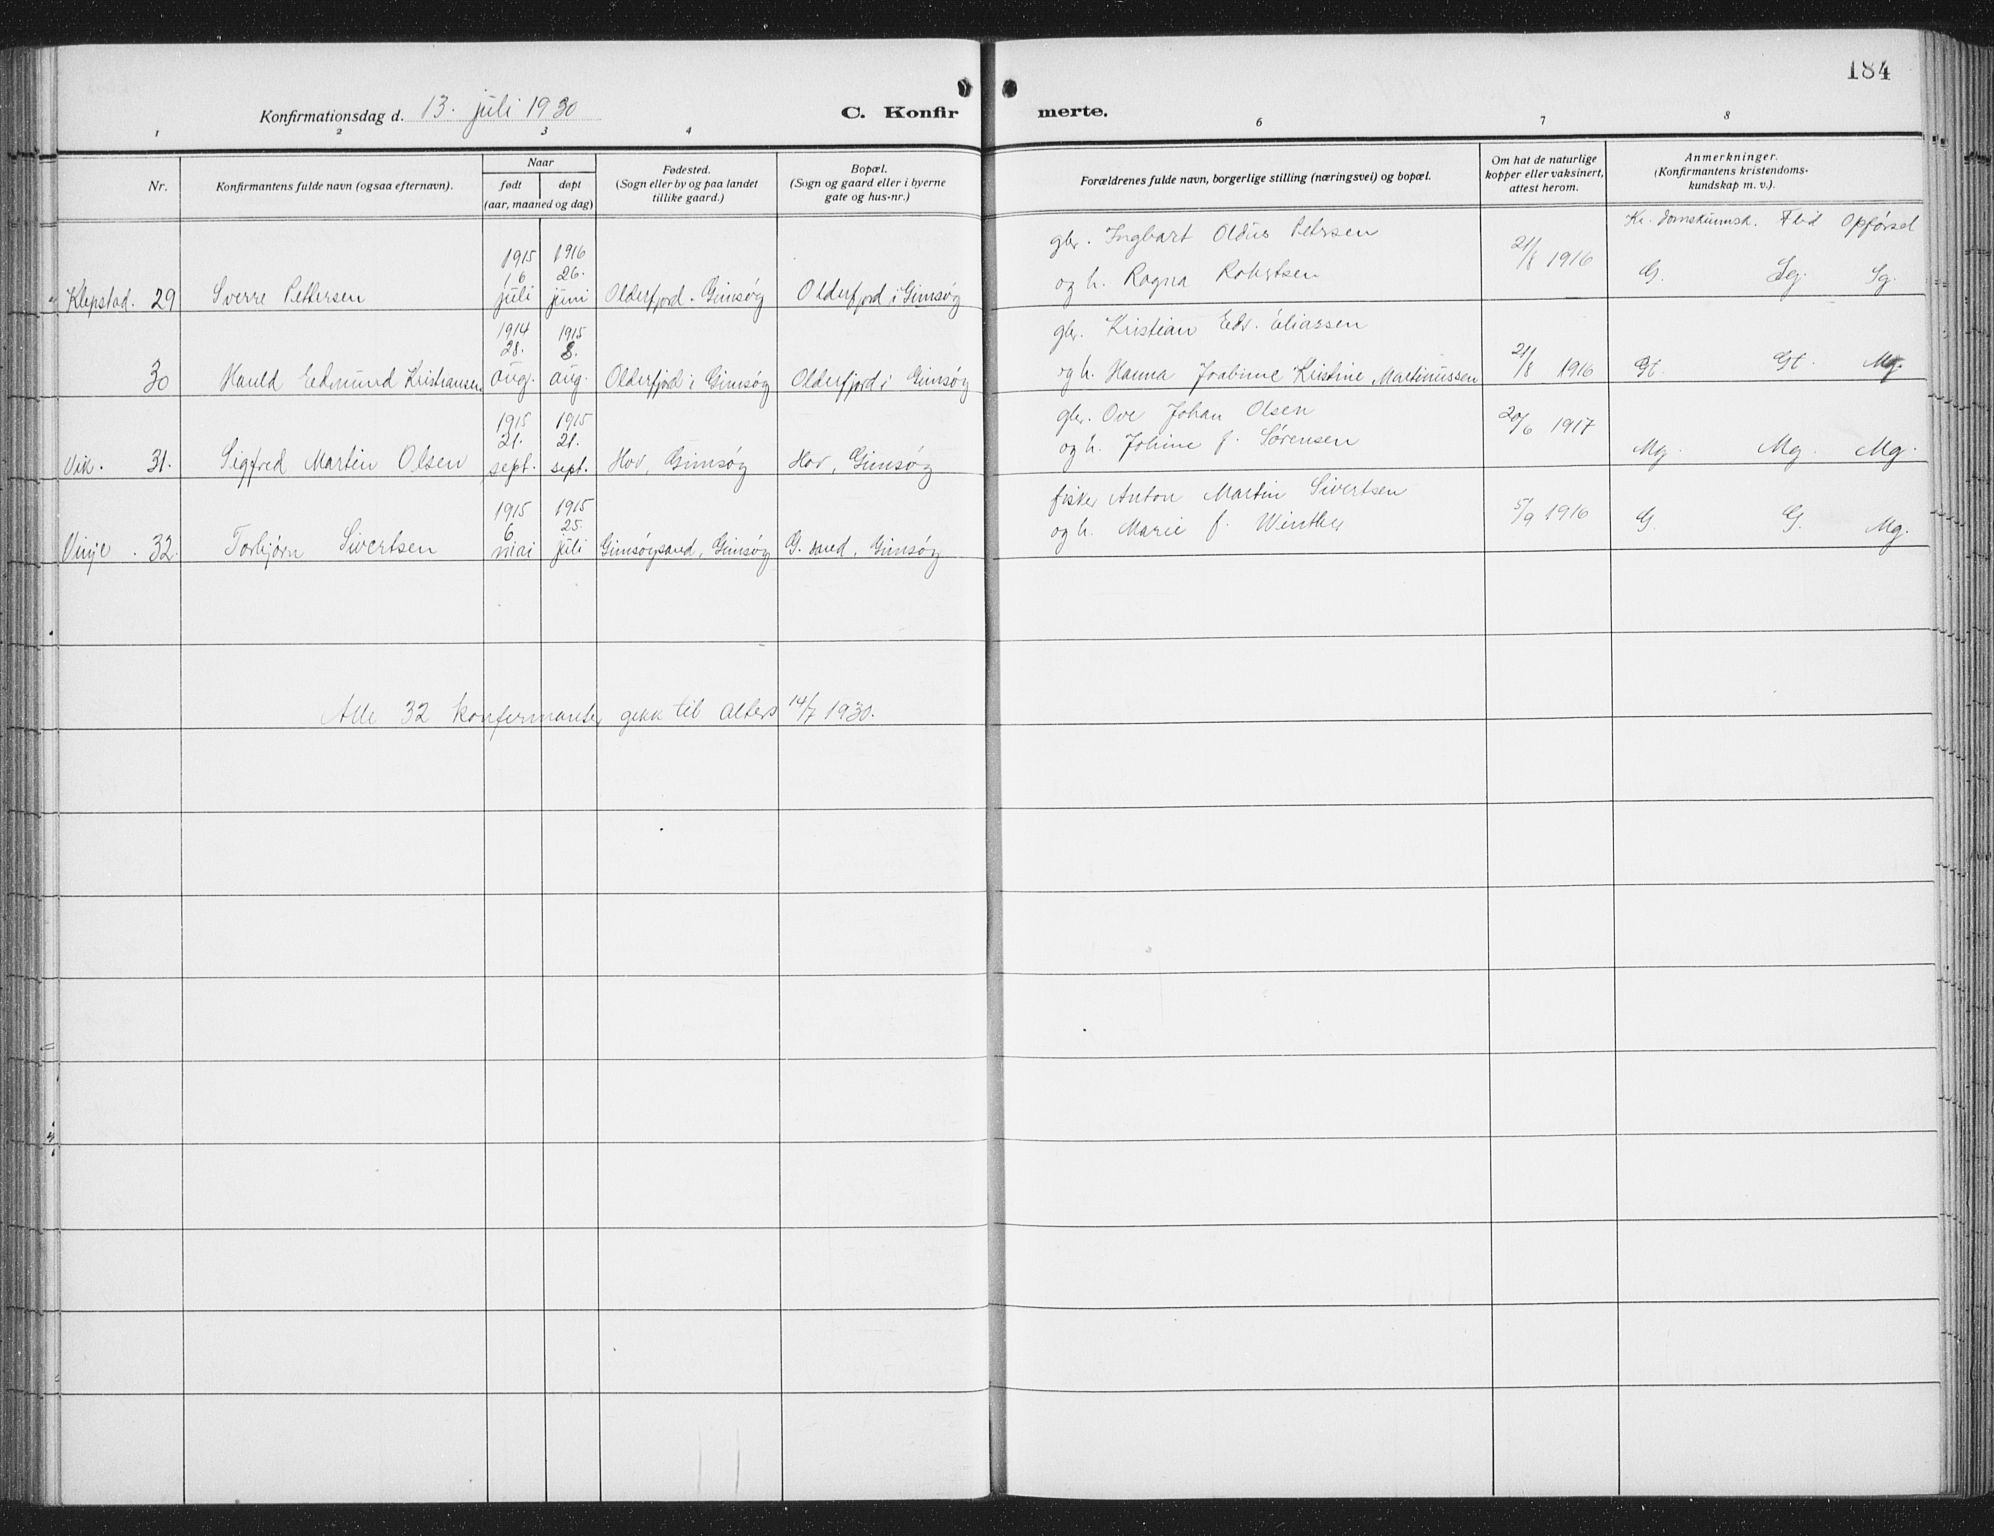 184
Konfirmationsdag d. 13. juli 1930
C. Konfirmerte.
1 2 3 4 6 7 8
Nr.
Konfirmantens fulde navn (ogsaa efternavn).
Naar
født døpt
(aar, maaned og dag)
Fødested.
(Sogn eller by og paa landet
tillike gaard.)
Bopæl.
(Sogn og gaard eller i byerne
gate og hus-nr.)
Forældrenes fulde navn, borgerlige stilling (næringsvei) og bopæl.
Om hat de naturlige
kopper eller vaksinert,
attest herom.
Anmerkninger.
(Konfirmantens kristendoms-
kundskap m. v.).
Kr. domskunnsk. Flid Opførsel
Klepstad. 29 Sverre Pettersen
1915 16 juli
1916 26. juni
Olderfjord. Gimsøy
Olderfjord i Gimsøy
gbr. Ingbart Oldus Petersen
og h. Ragna Robertsen
21/8 1916
G. Sg. Sg.
30 Harald Edmund Kristiansen.
1914 28. aug.
1915 8. aug.
Olderfjord i Gimsøy
Olderfjord i Gimsøy
gbr. Kristian Edv. Eliassen
og h. Hanna Joabine Kristine Martinussen
21/8 1916
Gt. Gt. Mg.
Vik. 31. Sigfred Martin Olsen
1915 21. sept.
1915 21. sept.
Hov, Gimsøy
Hov, Gimsøy
gbr. Ove Johan Olsen
og h. Johine f. Sørensen
20/6 1917
Mg. Mg. Mg.
Vinje. 32. Torbjørn Sivertsen
1915 6. mai
1915 25. juli
Gimsøysand, Gimsøy
G. sand, Gimsøy
fisker Anton Martin Sivertsen
og h. Marie f. Winther
5/9 1916
G. G. Mg.
Alle 32 konfirmanter gikk til alters 14/7 1930.